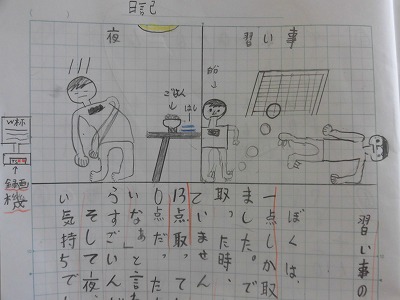 日記
習い事
夜
師
ごはん
はし
W杯
録画機
習い事の
ぼくは、
一点しか取
ました。で
取った時、
ていません
13点取って
0点だ。た
いなぁ」と言
らすごいんだ
そして夜、
い気持ちでし